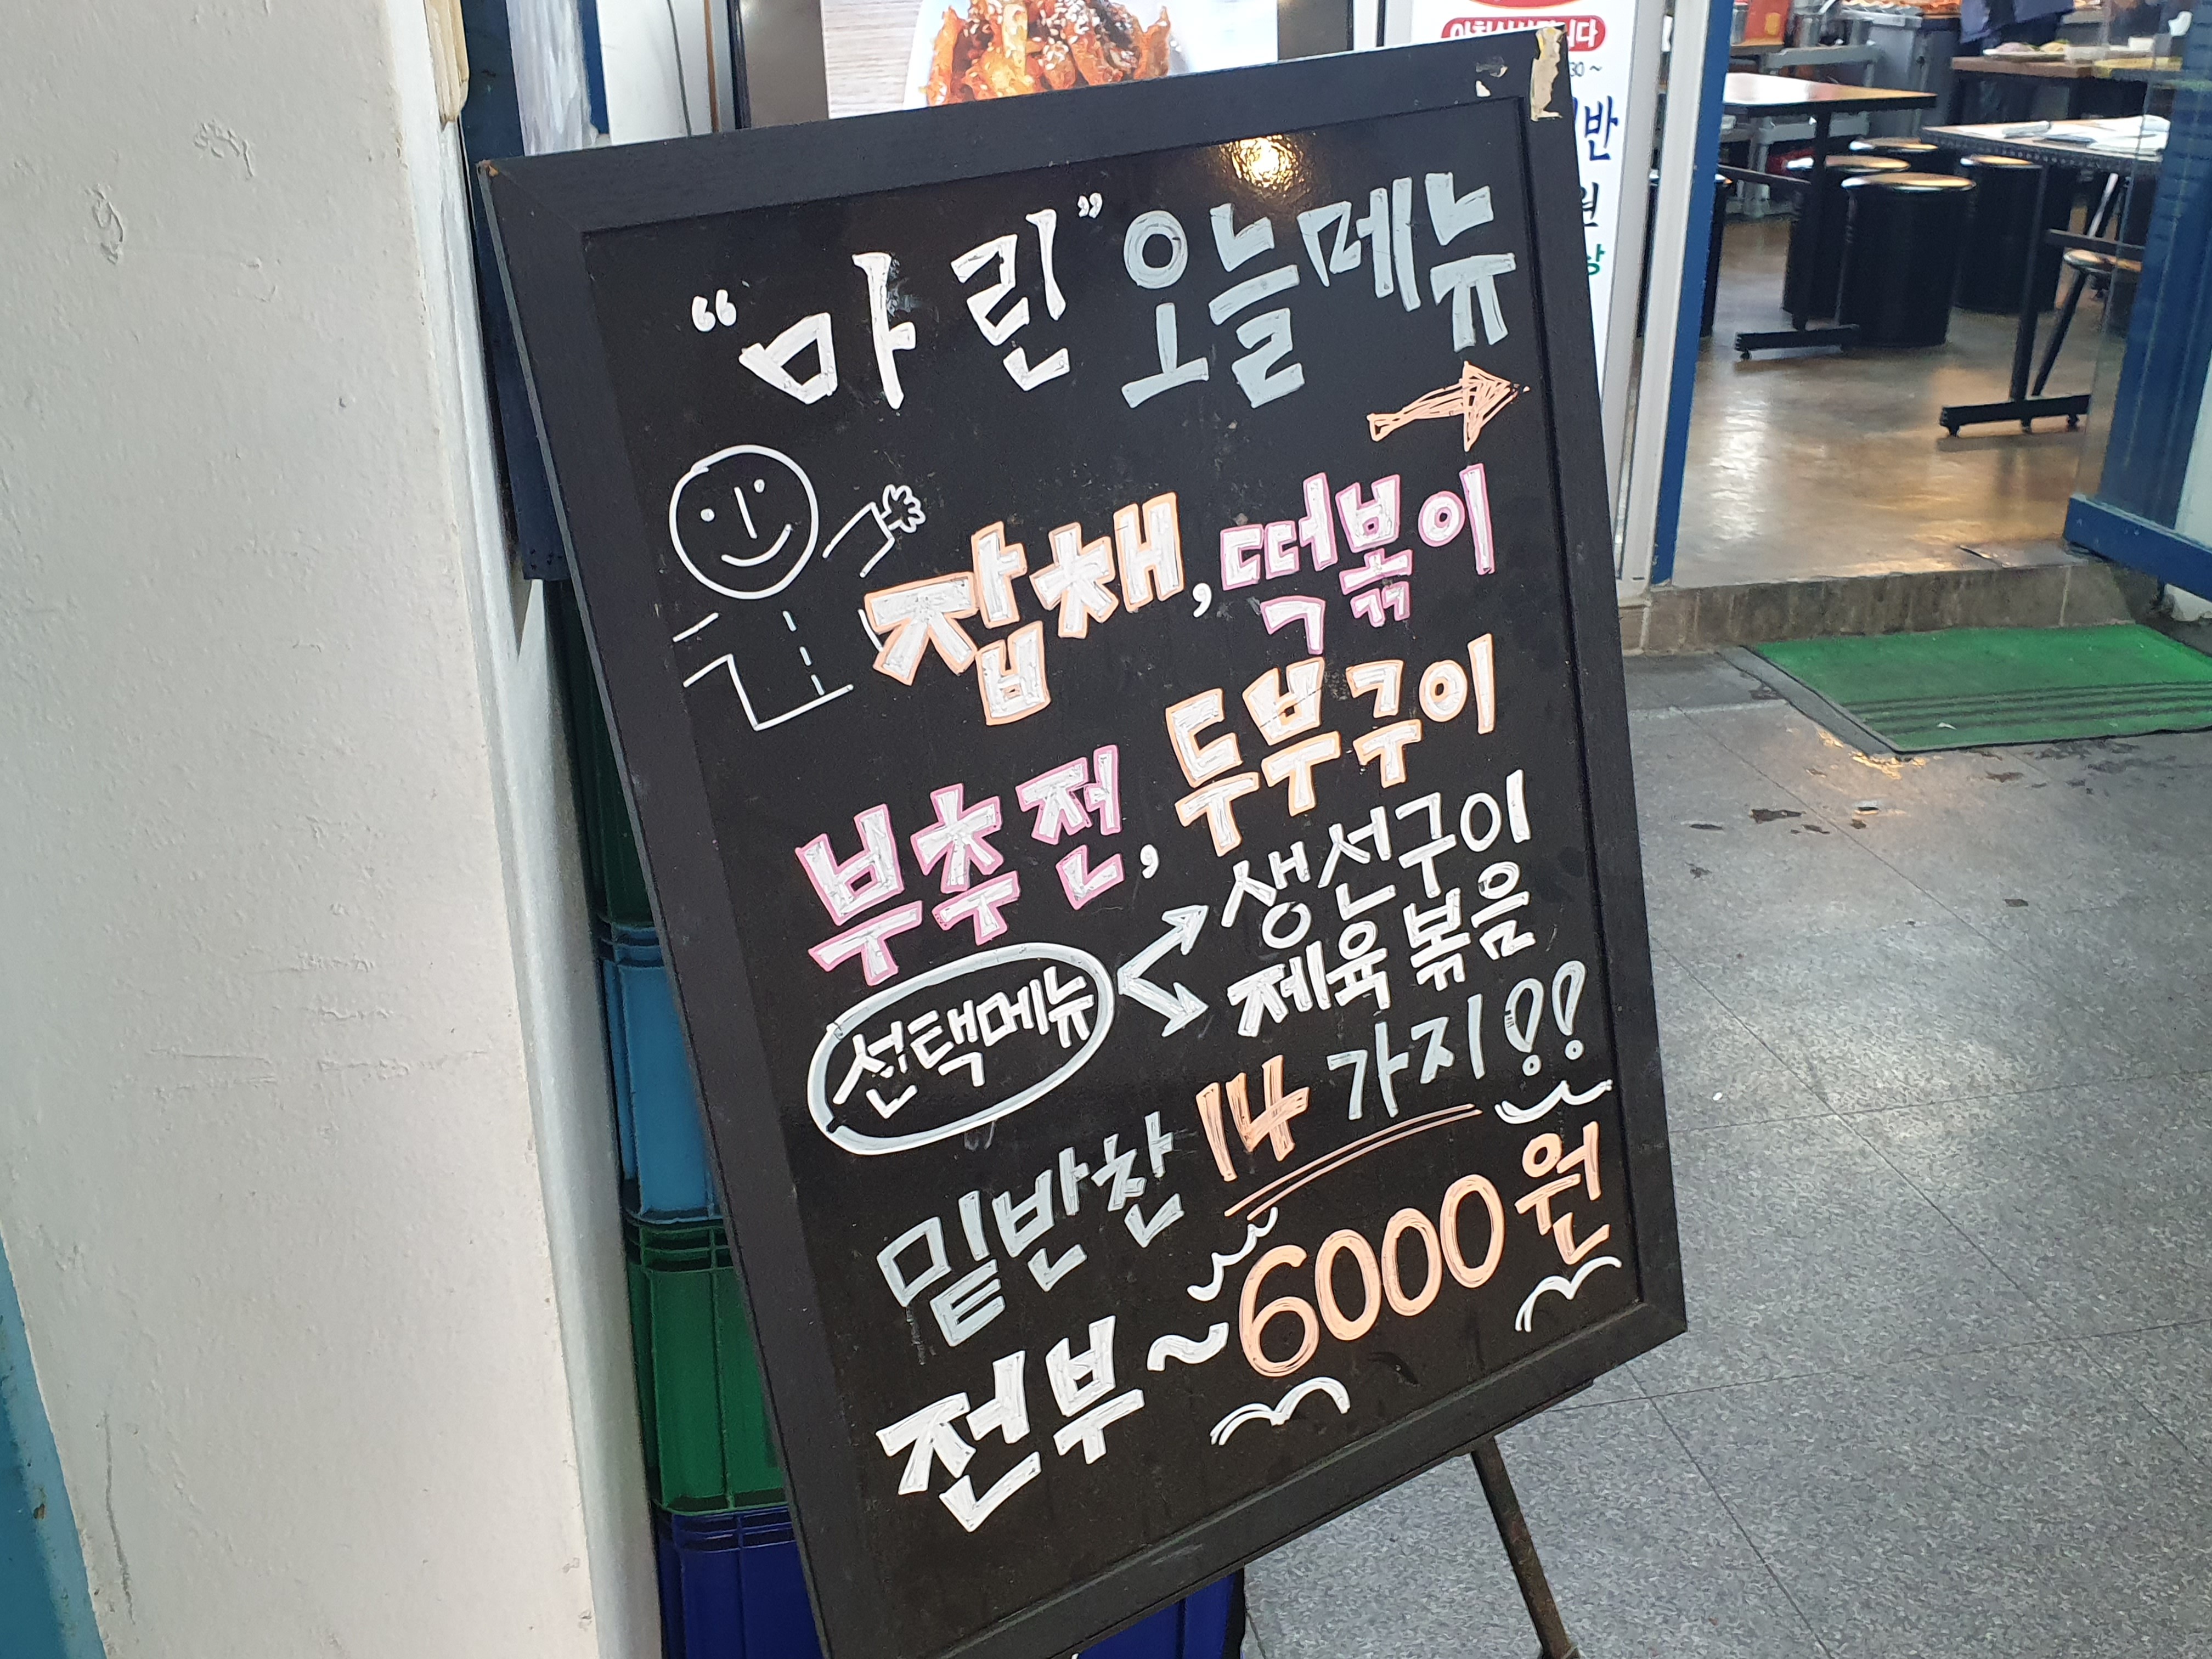 "마린" 오늘메뉴
잡채, 떡볶이
부추전, 두부구이
선택메뉴
생선구이
제육볶음
밑반찬 14가지!!
전부~6000원